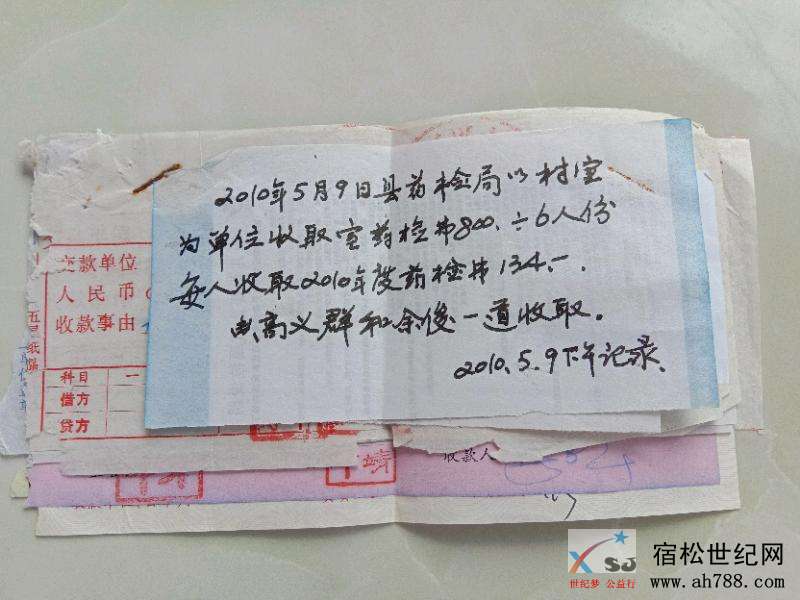 2010年5月9日县药检局以村室
为单位收取室药检费800.÷6人份
每人收取2010年度药检费134.-.
由高义群和余俊一道收取.
2010.5.9下午记录.
交款单位
人民币
收款事由
科目
借方
贷方
收款人
世纪梦 公益行
XSJ
宿松世纪网
www.ah788.com